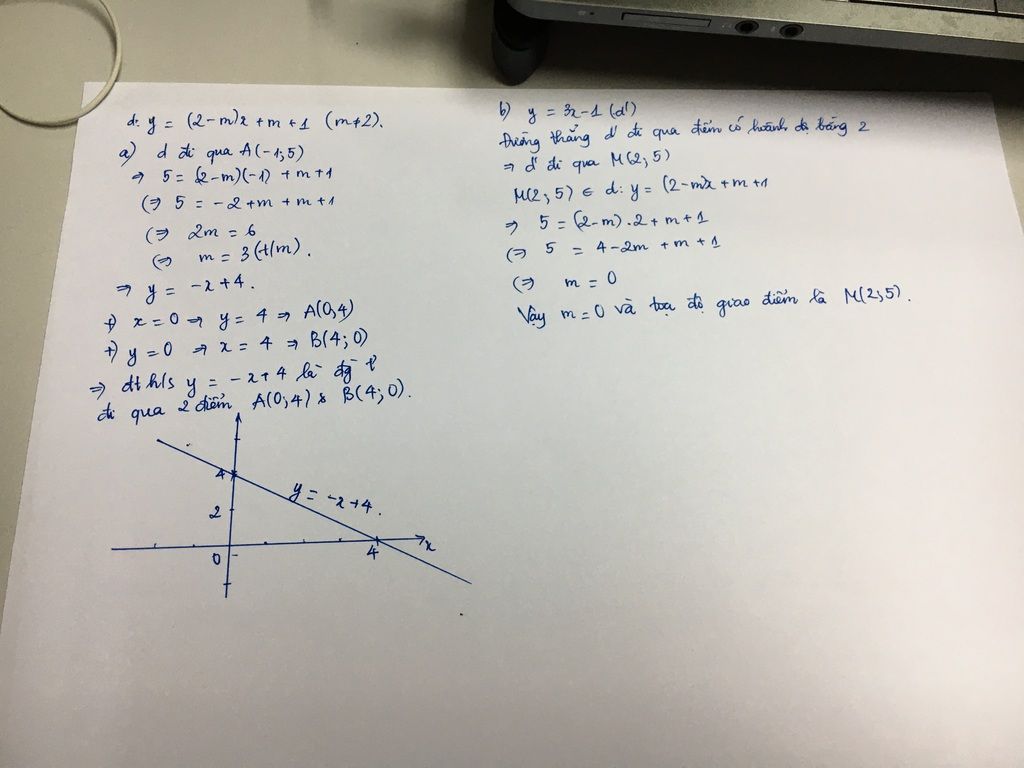 d: y = (2-m)x + m + 1 (m≠2).
a) d đi qua A(-1;5)
⇒ 5 = (2-m)(-1) + m + 1
⇔ 5 = -2 + m + m + 1
⇔ 2m = 6
⇔ m = 3 (t/m).
⇒ y = -x + 4.
+) x = 0 ⇒ y = 4 ⇒ A(0;4)
+) y = 0 ⇒ x = 4 ⇒ B(4;0)
⇒ đt h/s y = -x + 4 là đg t
đi qua 2 điểm A(0;4) & B(4;0).
4
y = -x + 4.
2
0
4
x
b) y = 3x - 1 (d')
Đường thẳng d' đi qua điểm có hoành độ bằng 2
⇒ d' đi qua M(2;5)
M(2;5) ∈ d: y = (2-m)x + m + 1
⇒ 5 = (2-m).2 + m + 1
⇔ 5 = 4 - 2m + m + 1
⇔ m = 0
Vậy m = 0 và tọa độ giao điểm là M(2;5).